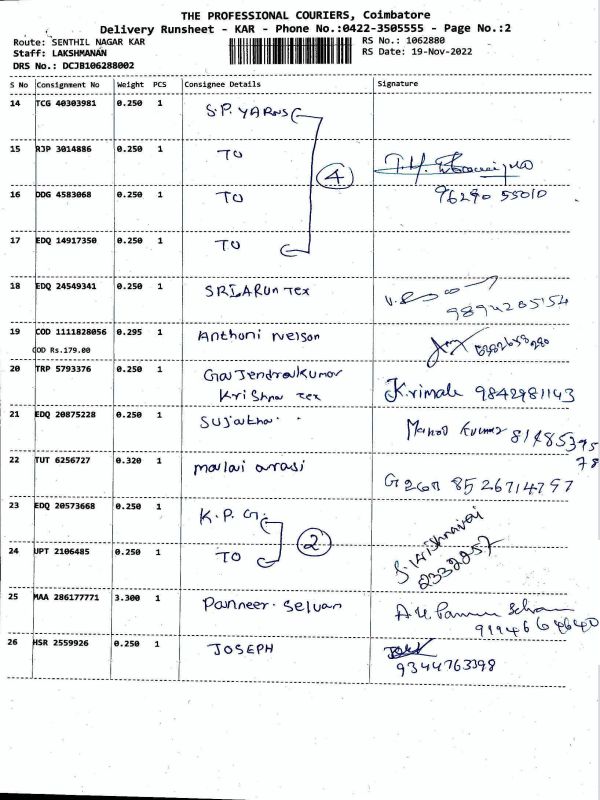 THE PROFESSIONAL COURIERS, Coimbatore
Delivery Runsheet - KAR - Phone No.:0422-3505555 - Page No.:2
Route: SENTHIL NAGAR KAR
RS No.: 1062880
Staff: LAKSHMANAN
RS Date: 19-Nov-2022
DRS No.: DCJB106288002
S No Consignment No Weight PCS Consignee Details Signature
14 TCG 40303981 0.250 1 S.P. YARNS
15 RJP 3014886 0.250 1 TO
4
16 DDG 4583068 0.250 1 TO 96290 55010
17 EDQ 14917350 0.250 1 TO
18 EDQ 24549341 0.250 1 SRI ARUN Tex
9894205154
19 COD 1111828056 0.295 1 Anthoni Nelson
COD Rs.179.00
20 TRP 5793376 0.250 1 Gajendrakumar
Krishna Tex K.rimale 9842981143
21 EDQ 20875228 0.250 1 Sujatha. Manoj Kumar 81485395
78
22 TUT 6256727 0.320 1 malai arasi
8526714797
23 EDQ 20573668 0.250 1 K.P.G.
2
24 UPT 2106485 0.250 1 TO
2332257
25 MAA 286177771 3.300 1 Panneer. Selvan
26 HSR 2559926 0.250 1 JOSEPH
9344763398